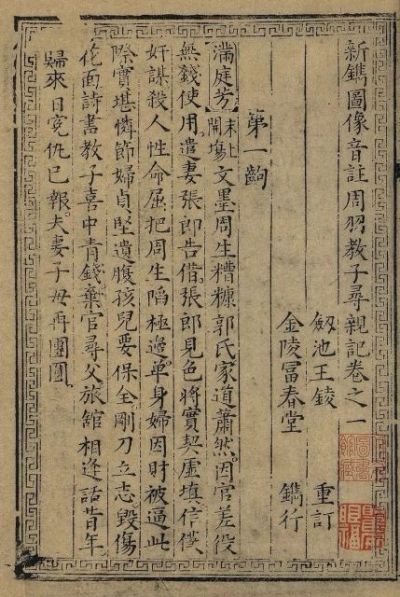 新鐫圖像音註周羽教子尋親記卷之一
劔池王錂 重訂
金陵冨春堂 鐫行
第一齣
滿庭芳 末上開塲 文墨周生糟糠郭氏家道蕭然因官差役
無錢使用遣妻張郎告借張郎見色將實契虛填信僕
奸謀殺人性命屈把周生陷極邉單身婦因財被逼此
際實堪憐節婦貞堅遺腹孩兒要保全剛刀立志毀傷
花面詩書教子喜中青錢棄官尋父旅舘相逢話昔年
歸來日寃仇已報夫妻子母再團圓